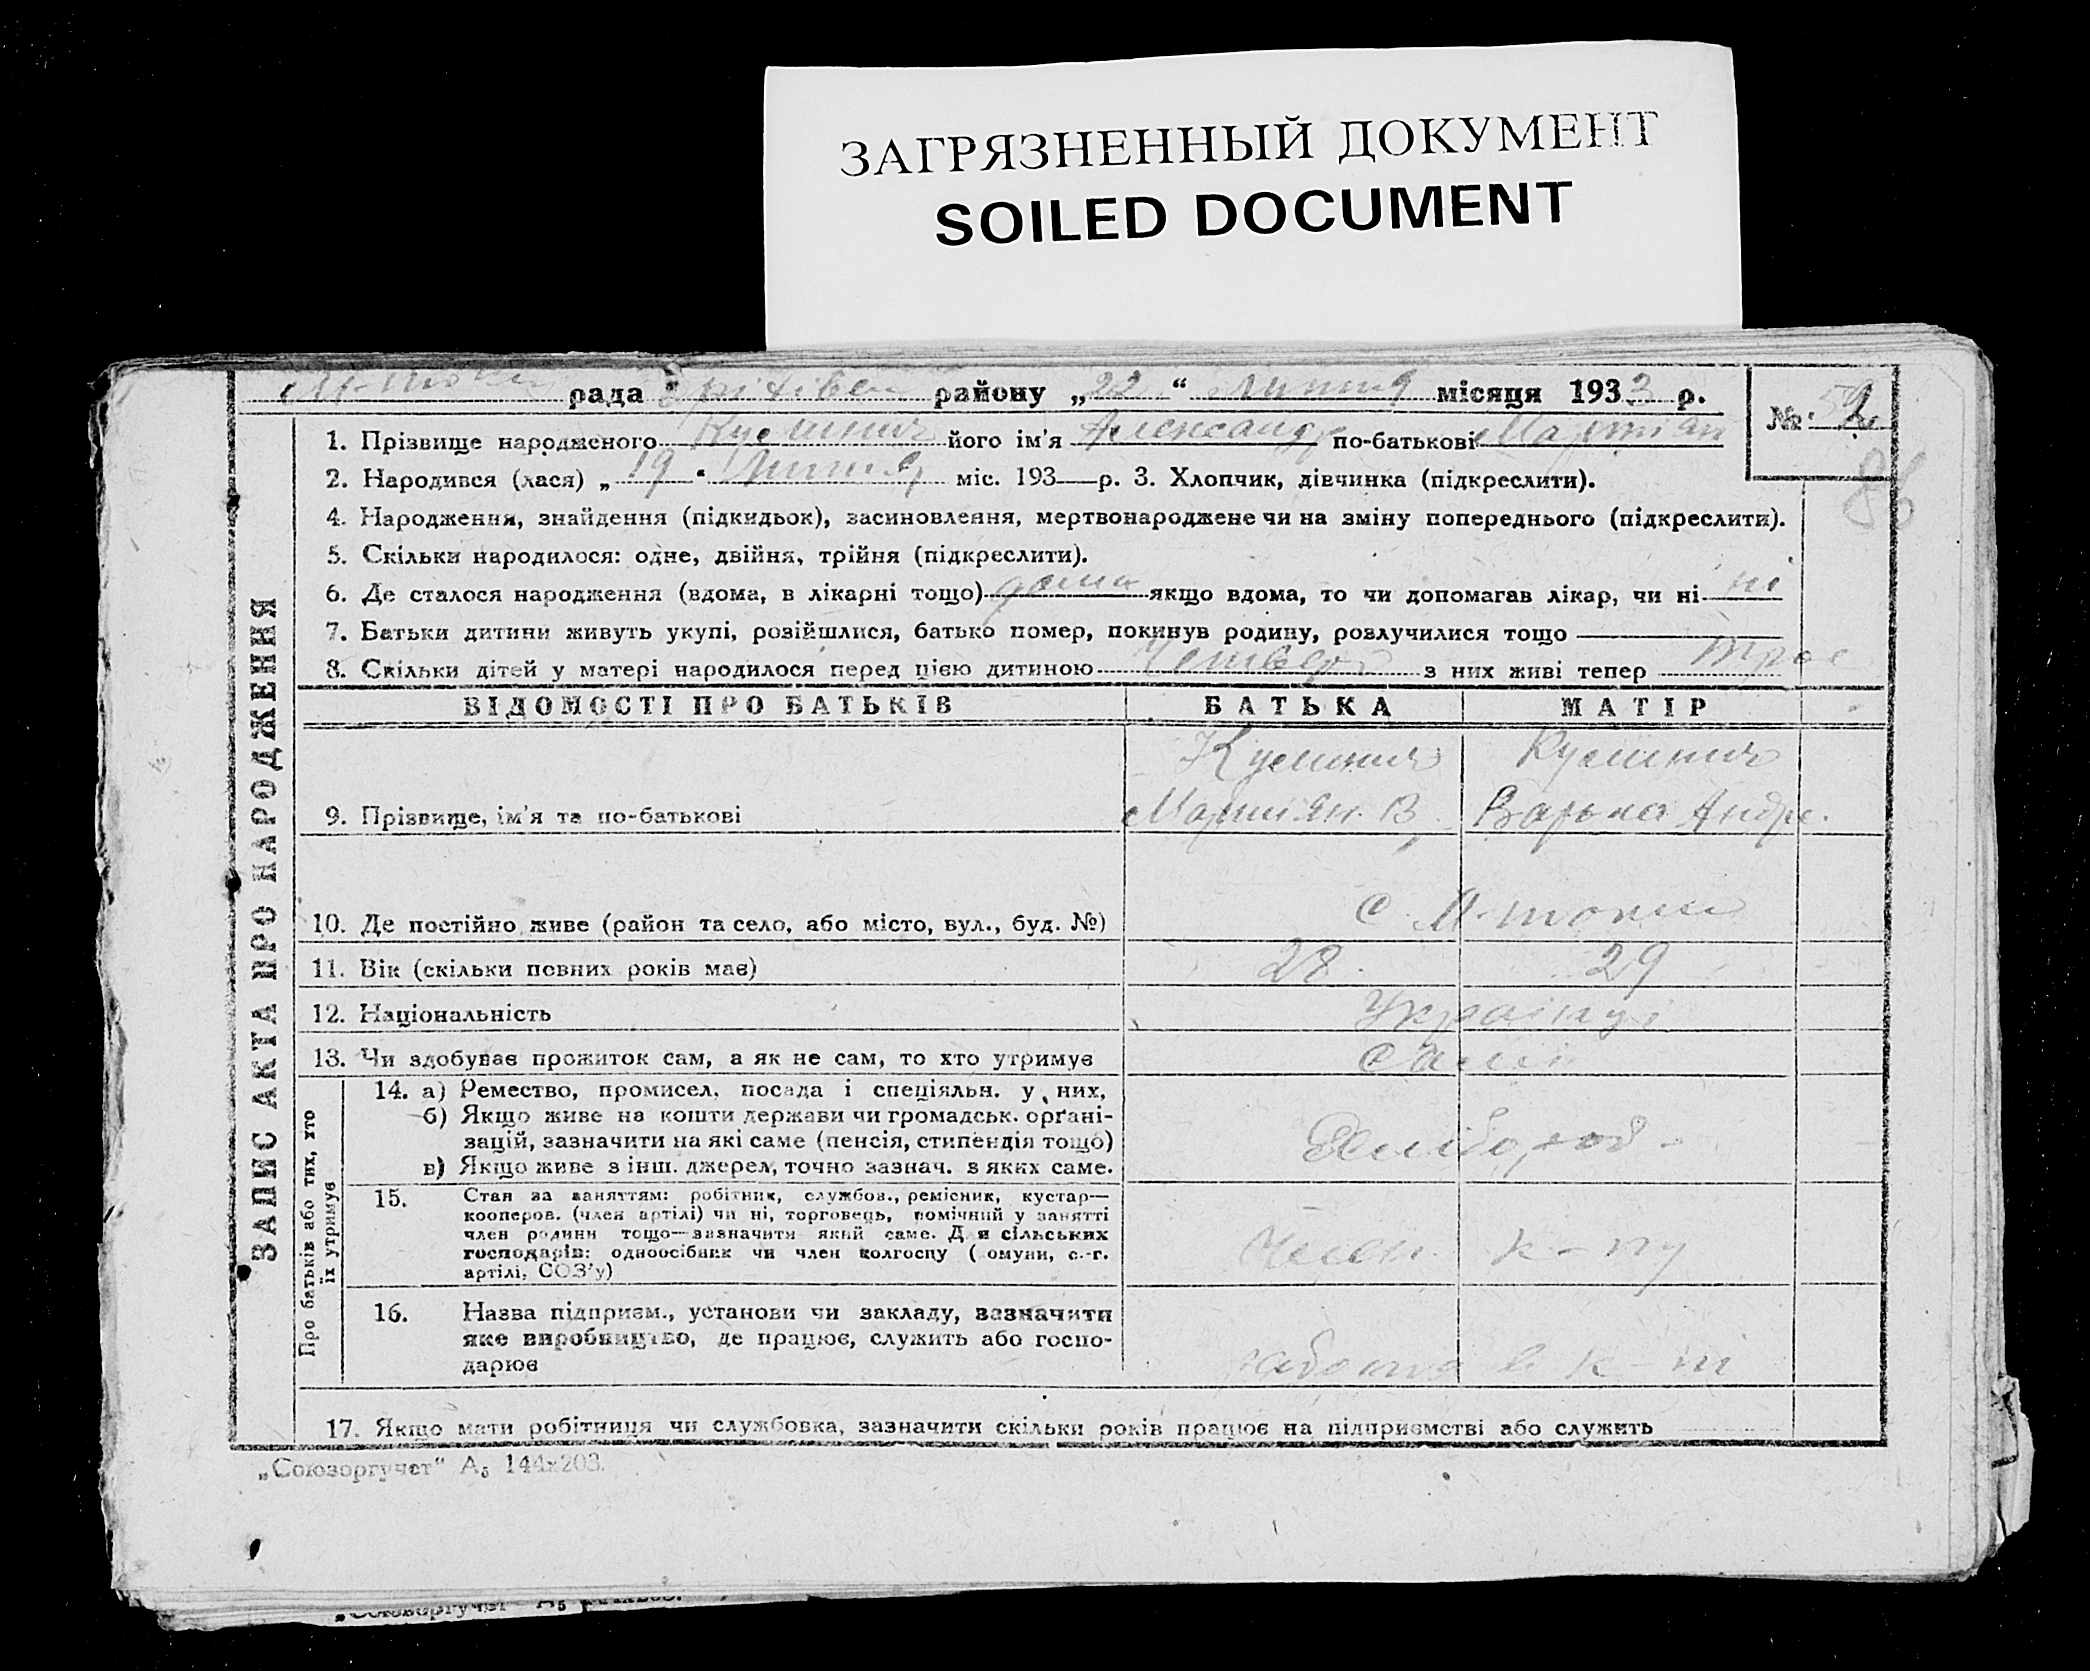 ЗАГРЯЗНЕННЫЙ ДОКУМЕНТ
SOILED DOCUMENT
рада району „22 “ Липня місяця 1933 р.
№ 2
1. Прізвище народженого його ім'я Александр по-батькові Мартіян
86
2. Народився (лася) „19 " Липня міс. 193—р. 3. Хлопчик, дівчинка (підкреслити).
4. Народження, знайдення (підкидьок), засиновлення, мертвонароджене чи на зміну попереднього (підкреслити).
5. Скільки народилося: одне, двійня, трійня (підкреслити).
6. Де сталося народження (вдома, в лікарні тощо) дома якщо вдома, то чи допомагав лікар, чи ні ні
7. Батьки дитини живуть укупі, розійшлися, батько помер, покинув родину, розлучилися тощо —
8. Скільки дітей у матері народилося перед цією дитиною Четверо з них живі тепер Троє
ЗАПИС АКТА ПРО НАРОДЖЕННЯ
ВІДОМОСТІ ПРО БАТЬКІВ БАТЬКА МАТІР
9. Прізвище, ім'я та по-батькові Мартіян. В. Варька Андре.
10. Де постійно живе (район та село, або місто, вул., буд. №) с. М-токи
11. Вік (скільки повних років має) 28 29
12. Національність Українці
13. Чи здобуває прожиток сам, а як не сам, то хто утримує самі
Про батьків або тих, хто їх утримує
14. а) Ремество, промисел, посада і спеціяльн. у них,
б) Якщо живе на кошти держави чи громадськ. орґані-
зацій, зазначити на які саме (пенсія, стипендія тощо)
в) Якщо живе з інш. джерел, точно зазнач. з яких саме.
Хлібороб
15. Стан за заняттям: робітник, службов., ремісник, кустар—
кооперов. (член артілі) чи ні, торговець, помічний у занятті
член родини тощо—зазначити який саме. Для сільських
господарів: одноосібник чи член колгоспу (комуни, с.-г.
артілі, СОЗ'у)
Член к-пу
16. Назва підприєм., установи чи закладу, зазначити
яке виробництво, де працює, служить або госпо-
дарює
работа в к-пі
17. Якщо мати робітниця чи службовка, зазначити скільки років працює на підприємстві або служить
„Союзоргучет“ А₅ 144х203.
„Союзоргучет“ А₅